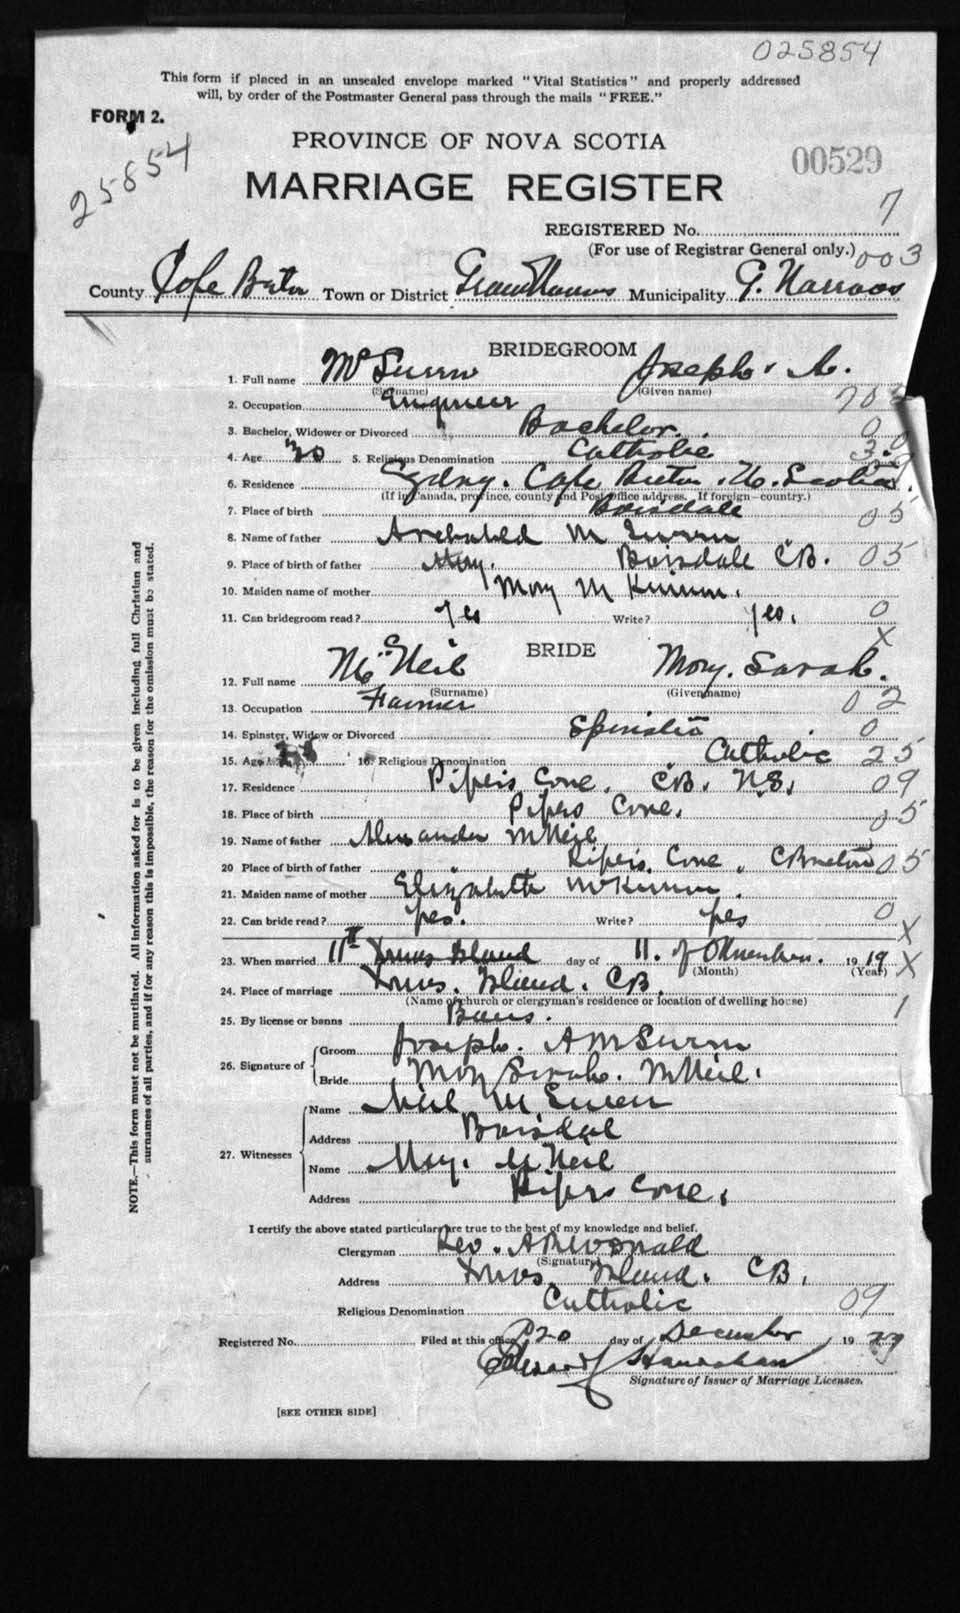 025854
This form if placed in an unsealed envelope marked "Vital Statistics" and properly addressed
will, by order of the Postmaster General pass through the mails "FREE."
FORM 2.
25854
PROVINCE OF NOVA SCOTIA
00529
MARRIAGE REGISTER
7
REGISTERED No.
(For use of Registrar General only.) 003
County Cape Breton Town or District Grand Narrows Municipality G. Narrows
BRIDEGROOM
1. Full name Joseph A.
(Surname) (Given name)
2. Occupation Engineer 702
3. Bachelor, Widower or Divorced Bachelor. 0
4. Age 30 5. Religious Denomination Catholic 30
6. Residence Sydney. Cape Breton. N. Scotia.
(If in Canada, province, county and Post Office address. If foreign—country.)
7. Place of birth Boisdale 05
8. Name of father Archabald
9. Place of birth of father Boisdale CB. 05
10. Maiden name of mother Mary
11. Can bridegroom read? yes Write? yes. 0
X
BRIDE
12. Full name McNeil Mary. Sarah.
(Surname) (Given name)
13. Occupation Farmer 02
14. Spinster, Widow or Divorced 0
15. Age 16. Religious Denomination Catholic 25
17. Residence Pipers Cove. CB. NS. 09
18. Place of birth Pipers Cove. 05
19. Name of father Alexander McNeil
20 Place of birth of father Pipers Cove, CBreton 05
21. Maiden name of mother Elizabeth
22. Can bride read? yes. Write? yes 0
X
23. When married 11th day of 11. of November. 1919 X
(Month) (Year)
24. Place of marriage Xmas. Island. CB.
(Name of church or clergyman's residence or location of dwelling house)
25. By license or banns Bans. 1
26. Signature of Groom Joseph. A
Bride Mary Sarah. McNeil.
27. Witnesses Name Neil
Address Boisdal
Name Mary. McNeil
Address Pipers Cove.
I certify the above stated particulars are true to the best of my knowledge and belief.
Clergyman Rev. A
(Signature)
Address Xmas Island. CB.
Religious Denomination Catholic 09
Registered No. Filed at this office 20 day of December 19
Edward Hanrahan
Signature of Issuer of Marriage Licenses.
[SEE OTHER SIDE]
NOTE.—This form must not be mutilated. All information asked for is to be given including full Christian and
surnames of all parties, and if for any reason this is impossible, the reason for the omission must be stated.